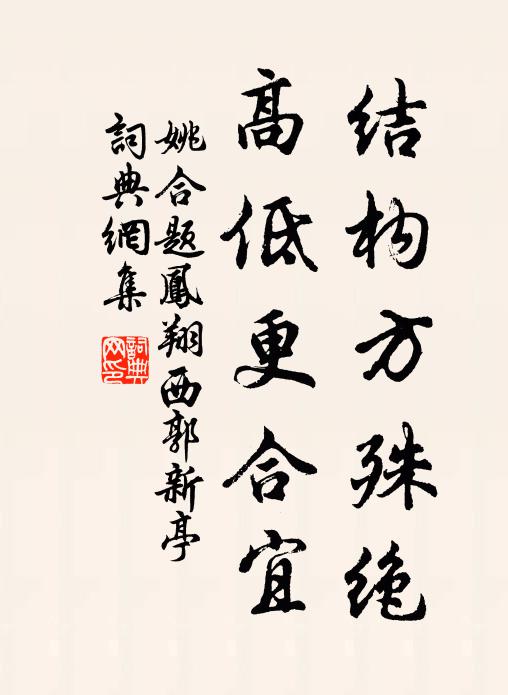 结构方殊绝
高低更合宜
姚合题鳳翔西郭新亭
詞典網集
詞典网印